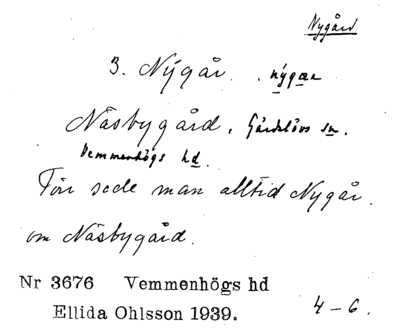 Nygård
3. Nýgår. nýgɑɑ
Näsbygård. Gärdslövs sn.
Vemmenhögs hd.
Förr sade man alltid Nygår.
om Näsbygård.
Nr 3676 Vemmenhögs hd
Ellida Ohlsson 1939.
4-6.